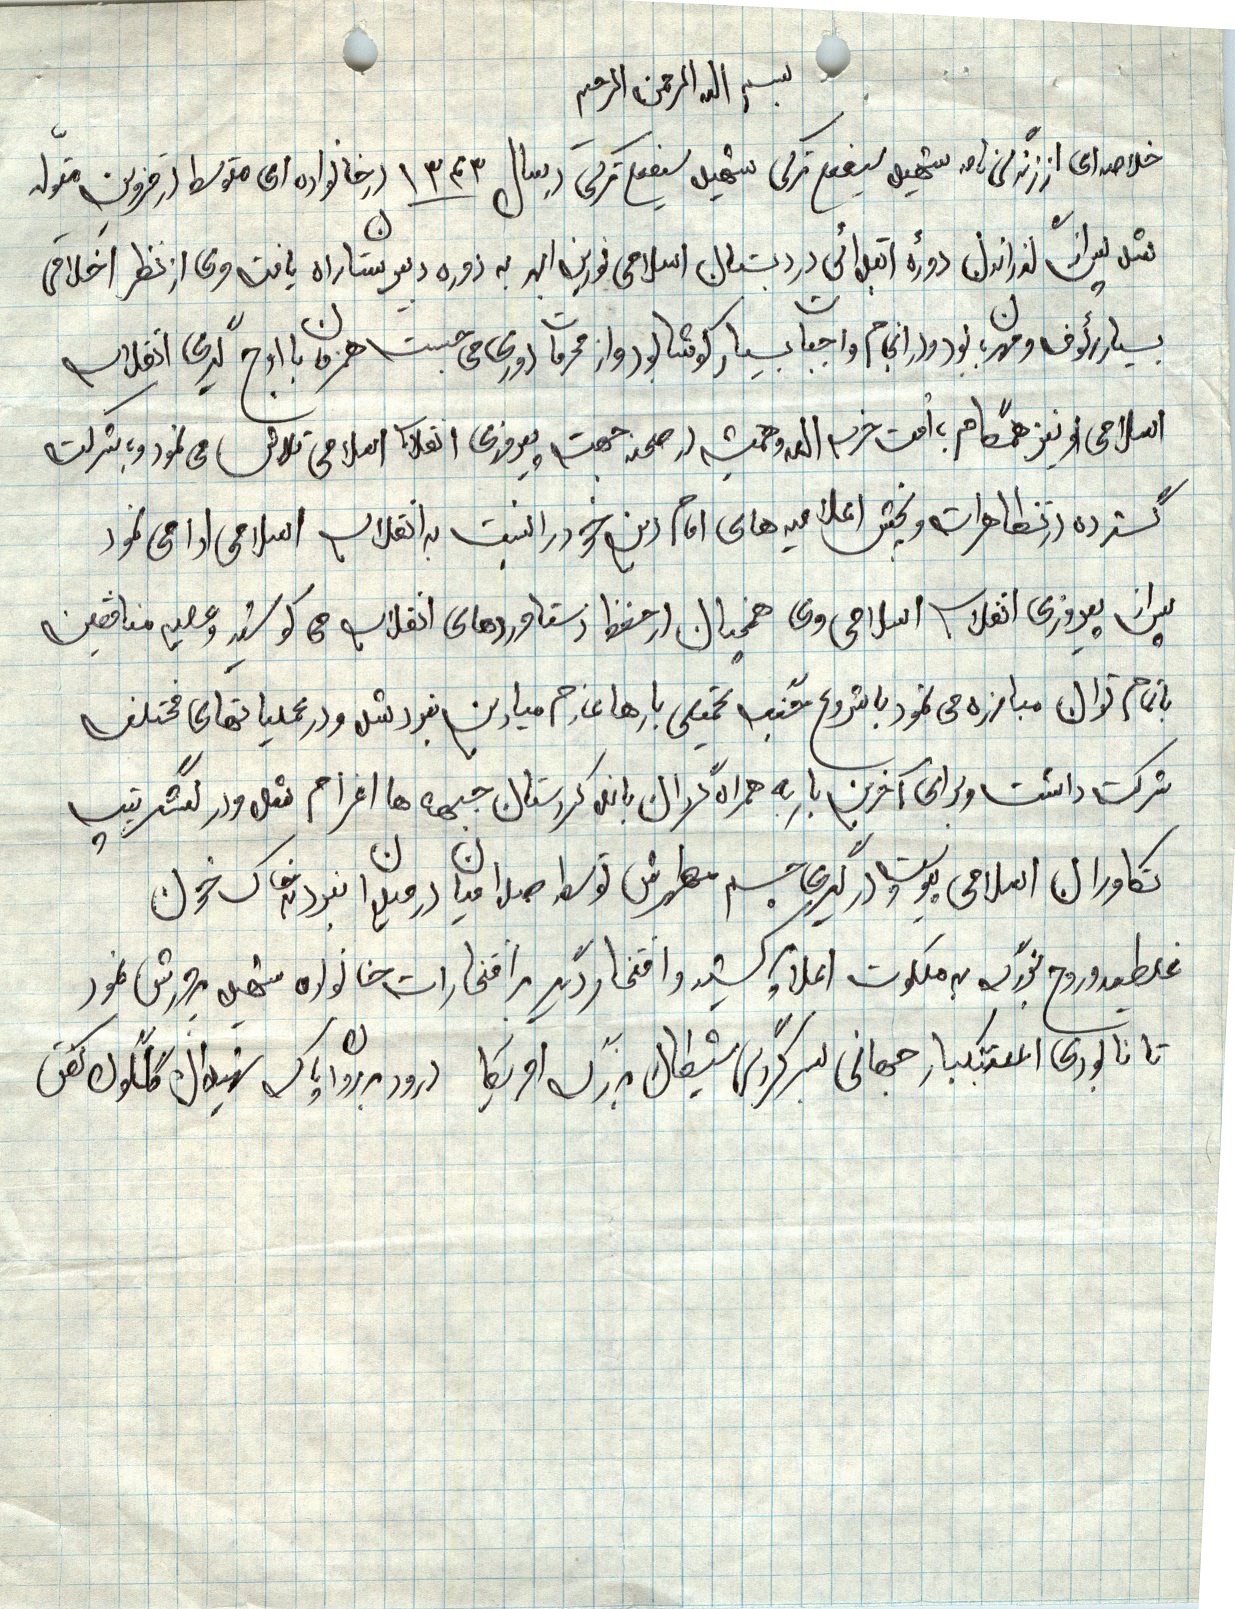 بسم الله الرحمن الرحیم
خلاصه ای از زندگی نامه شهید شفیع ترکی شهید شفیع ترکی در سال ۱۳۴۳ در خانواده ای متوسط در قزوین متولد
شد پس از گذراندن دورهٔ ابتدائی در دبستان اسلامی به دوره دبیرستان راه یافت وی از نظر اخلاقی
بسیار رئوف و مهربان بود و در انجام واجبات بسیار کوشا بود و از محرمات دوری می جست همزمان با اوج گیری انقلاب
اسلامی او نیز همگام با امت حزب الله و همیشه در صحنه جهت پیروزی انقلاب اسلامی تلاش می نمود و با شرکت
گسترده در تظاهرات و پخش اعلامیه های امام دین خود را نسبت به انقلاب اسلامی ادا می نمود
پس از پیروزی انقلاب اسلامی وی همچنان در حفظ دستاوردهای انقلاب می کوشید و علیه منافقین
با تمام توان مبارزه می نمود با شروع جنگ تحمیلی بارها عازم میادین نبرد شد و در عملیاتهای مختلف
شرکت داشت و برای آخرین بار به همراه گردان بانه کردستان جبهه ها اعزام شد و در لشگر تیپ
تکاوران اسلامی پیوست و در گیری جسم مطهرش توسط صدامیان در میدان نبرد به خاک خون
غلطید و روح بزرگ به ملکوت اعلا پر کشید و افتخار دگر بر افتخارات خانواده شهید پرورش نمود
تا نابودی استکبار جهانی بسرکردگی شیطان بزرگ امریکا درود بر روان پاک شهیدان گلگون کفن